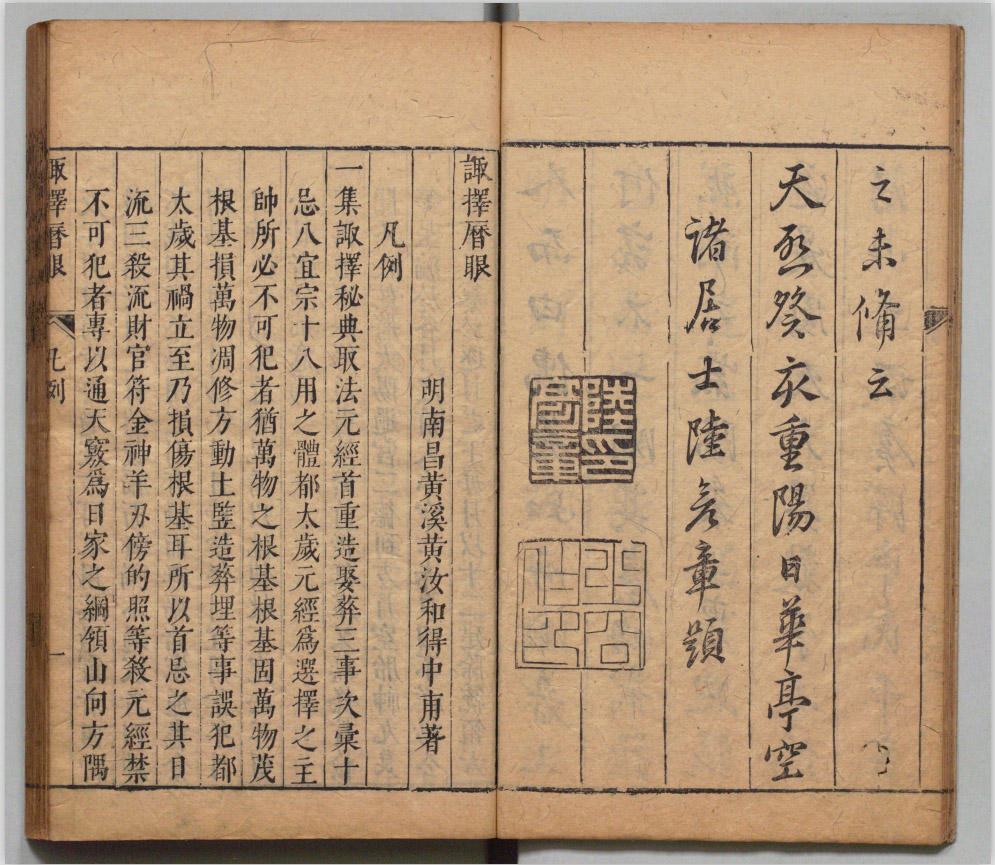 之未脩云
天啓癸亥重陽日華亭空
諸居士陸彥章題
陸彥章印
諏擇曆眼
明南昌黃溪黃汝和得中甫著
凡例
一集諏擇秘典取法元經首重造娶葬三事次彙十
忌八宜宗十八用之體都太歲元經爲選擇之主
帥所必不可犯者猶萬物之根基根基固萬物茂
根基損萬物凋修方動土豎造葬埋等事誤犯都
太歲其禍立至乃損傷根基耳所以首忌之其日
流三殺流財官符金神羊刃傍的照等殺元經禁
不可犯者專以通天竅爲日家之綱領山向方隅
諏擇曆眼
凡例
一